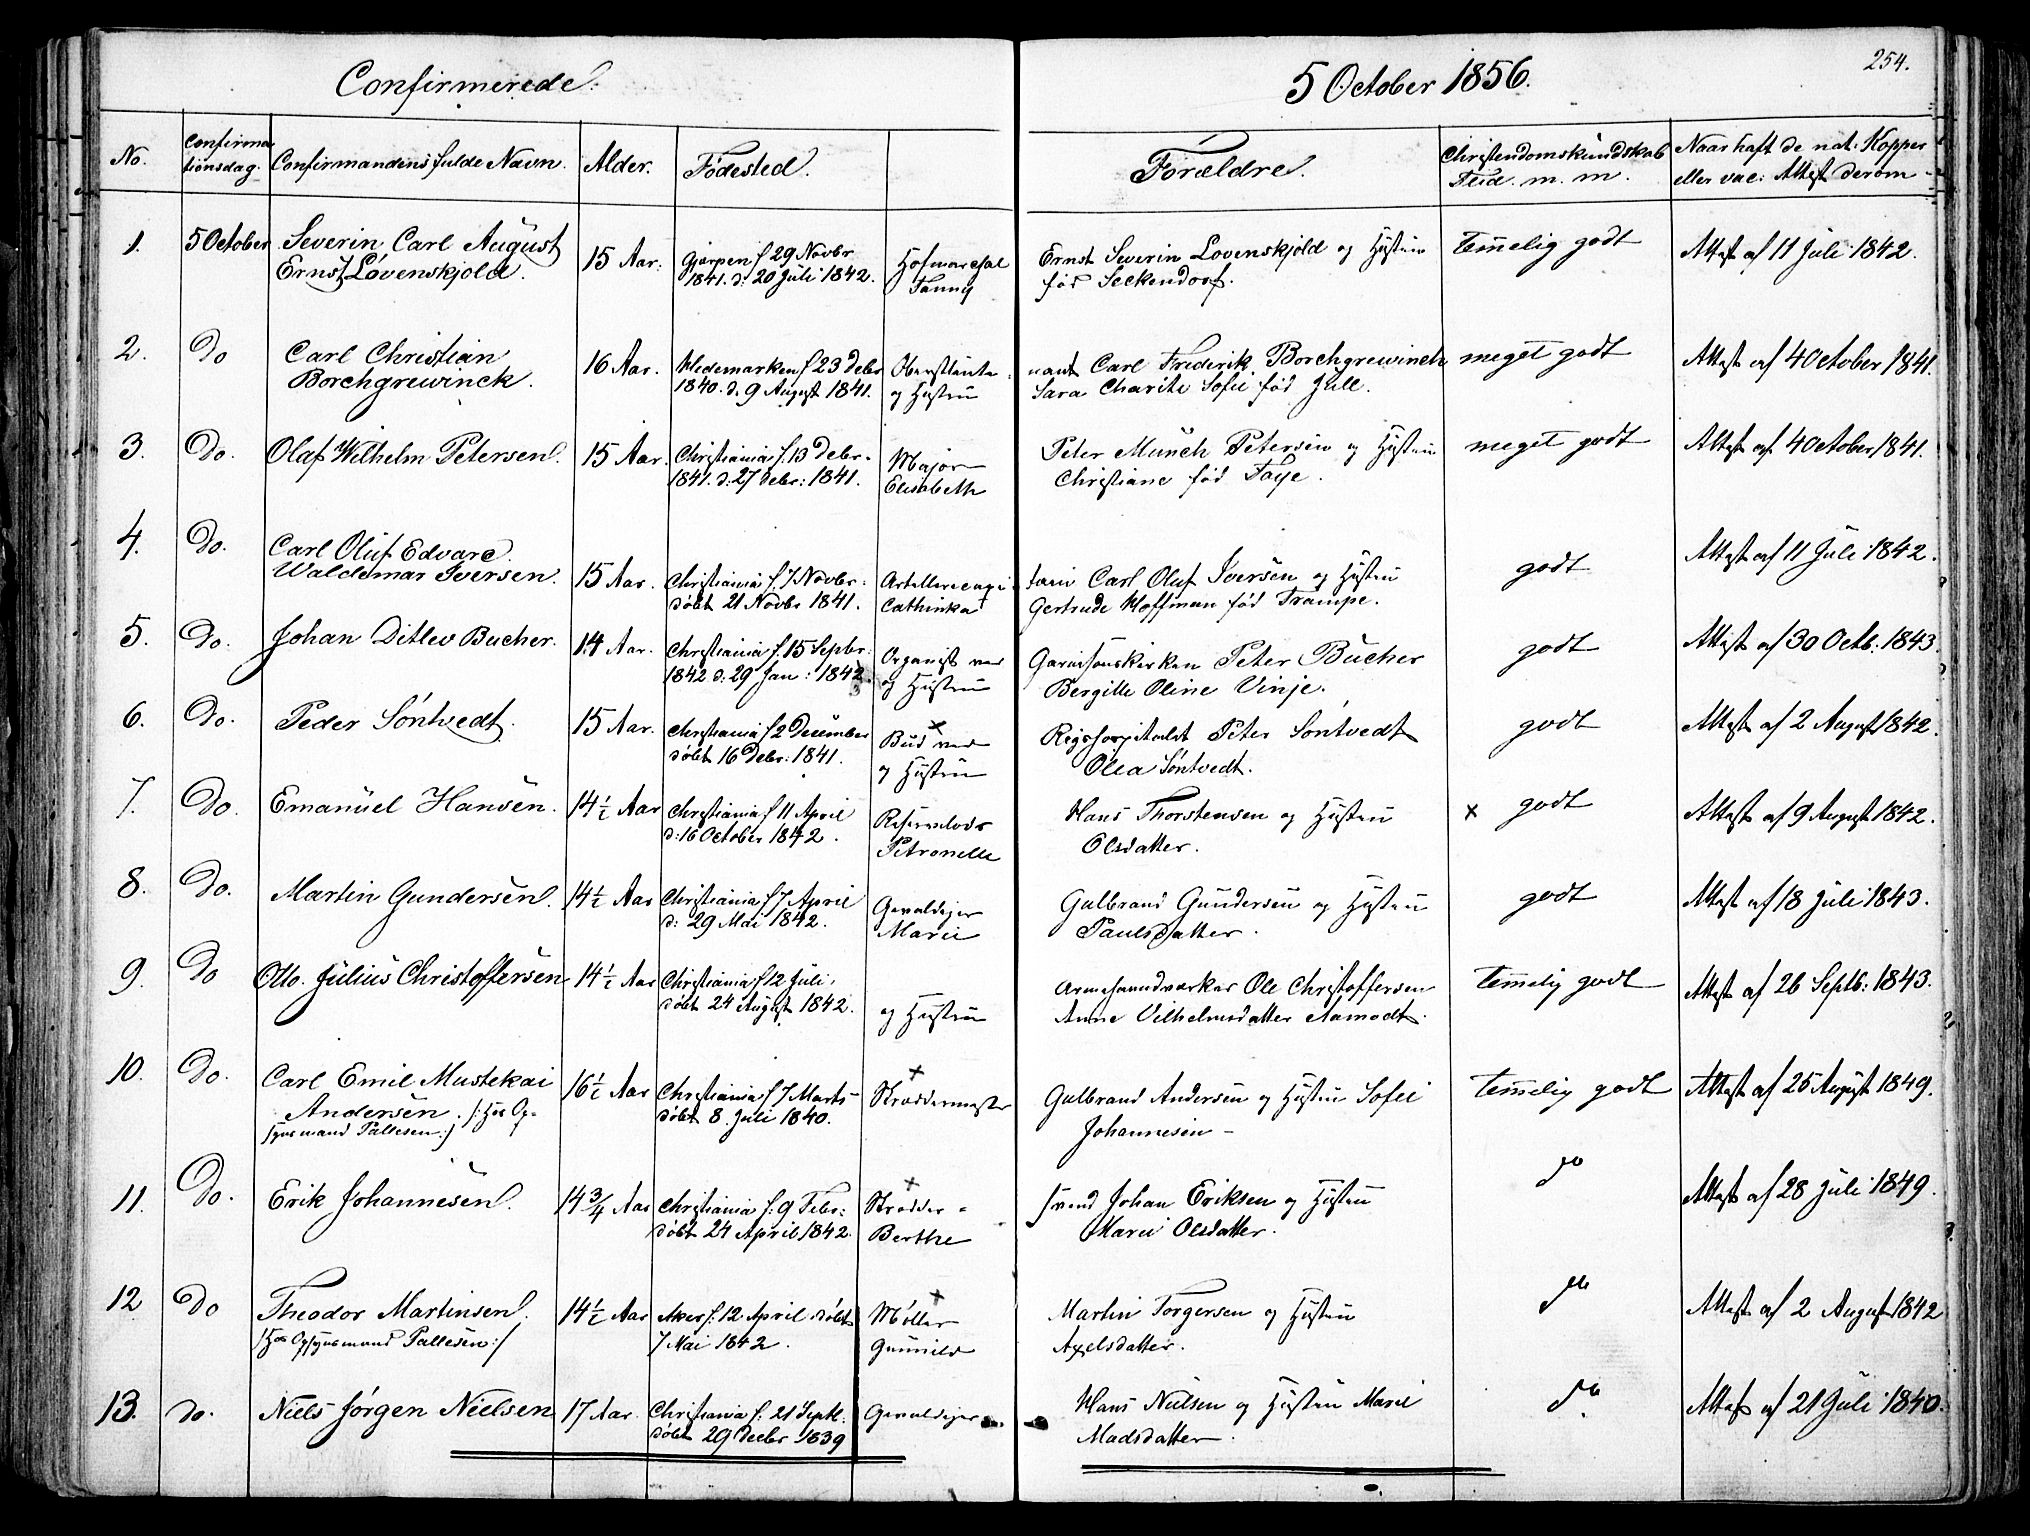 254.
Confirmerede.
5 October 1856.
No.
Confirma
tionsdag.
Confirmandens fulde Navn.
Alder.
Fødested.
Forældre.
Christendomskundskab
Flid. m. m.
Naar haft de nat: Kopper
eller vac: Attest derom
1.
5 October
Severin Carl August
Ernst Løvenskjold.
15 Aar.
Gjerpen f 29 Novbr
1841. d: 20 Juli 1842.
Hofmarchal
Fanny
Ernst Severin Lovenskjold og Hustru
fød Seckendorf.
temmelig godt
Attest af 11 Juli 1842.
2.
Do
Carl Christian
Borchgrewinck.
16 Aar.
Hedemarken f 23 Debr
1840. d. 9 August 1841.
Oberstleute
og Hustru
nant Carl Frederik Borchgrewinck
Sara Charite Sofie fød Jull.
meget godt
Attest af 4 October 1841.
3.
Do.
Olaf Wilhelm Petersen.
15 Aar.
Christiania f. 13 Debr.
1841. d: 27 Debr: 1841.
Major
Elisabeth
Peter Munch Petersen og Hustru
Christiane fød Faye.
meget godt
Attest af 4 October 1841.
4.
Do.
Carl Oluf Edvard
Waldemar Iversen.
15 Aar.
Christiania f. 7 Novbr:
døbt 21 Novbr 1841.
Artillericapi
Cathinka
tain Carl Oluf Iversen og Hustru
Gertrude Hoffman fød Trampe.
godt
Attest af 11 Juli 1842.
5.
Do.
Johan Ditlev Bucher.
14 Aar.
Christiania f. 15 Septbr:
1842 d: 29 Jan: 1843.
Organist ved
og Hustru
Garnisonskirken Peter Bucher
Bergitte Oline Vinje.
godt
Attest af 30 Octb: 1843.
6.
Do.
Peder Søntvedt.
15 Aar.
Christiania f 2 December
døbt 16 Debr: 1841.
x
Bud ved
og Hustru
Rigshospitalet Peter Søntvedt
Olea Søntvedt.
godt
Attest af 2 August 1842.
7.
Do.
Emanuel Hansen.
14 1/2 Aar
Christiania f 11 April
d: 16 October 1842.
Petronelle
Hans Thorstensen og Hustru
Olsdatter.
x
godt
Attest af 9 August 1842.
8.
Do.
Martin Gundersen.
14 1/2 Aar
Christiania f 7 April
d: 29 Mai 1842.
Gevaldiger
Marie
Gulbrand Gundersen og Hustru
Paulsdatter.
godt
Attest af 18 Juli 1843.
9.
Do
Otto Julius Christoffersen
14 1/2 Aar
Christiania f 12 Juli
døbt 24 August 1842.
og Hustru
Ole Christoffersen
Anne Vilhelmsdatter Aamodt.
temmelig godt
Attest af 26 Septb: 1843.
10.
Do.
Carl Emil Mustekai
Andersen. /: Hos Op-
synsmand Pallesen :/
16 1/2 Aar
Christiania f 7 Marts
døbt 8. Juli 1840.
x
Skræddermester
Gulbrand Andersen og Hustru Sofie
Johannesen
temmelig godt
Attest af 25 August 1849.
11.
Do.
Erik Johannesen.
14 3/4 Aar
Christiania f: 9 Febr:
døbt 24 April 1842.
x
Skrædder-
Berthe
svend Johan Eriksen og Hustru
Marie Olsdatter.
do
Attest af 28 Juli 1849.
12
Do
Theodor Martinsen.
/: Hos Opsynsmand Pallesen :/
14 1/2 Aar
Aker f: 12 April døbt
7 Mai 1842.
x
Møller
Gunnild
Martin Torgersen og Hustru
Axelsdatter.
do
Attest af 2 August 1842
13.
Do.
Niels Jørgen Nielsen
17 Aar.
Christiania f: 21 Septb.
døbt 29 Decbr 1839
Gevaldiger
Hans Nielsen og Hustru Marie
Madsdatter.
do
Attest af 21 Juli 1840.